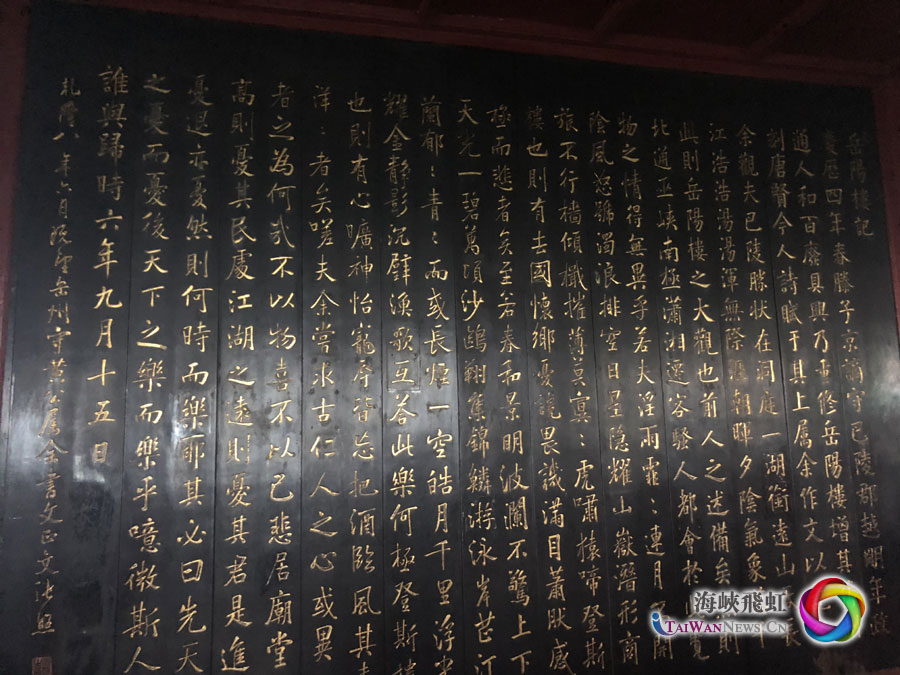 岳陽樓記
慶歷四年春滕子京謫守巴陵郡越明年政
通人和百廢具興乃重修岳陽樓增其
刻唐賢今人詩賦于其上属余作文以
余觀夫巴陵勝狀在洞庭一湖銜遠山
江浩浩湯湯渾無際涯朝暉夕陰氣象
則岳陽樓之大觀也前人之述備矣
北通巫峽南極瀟湘遷客騷人都會於
物之情得無異乎若夫淫雨霏：連月
陰風怒號濁浪排空日星隐耀山嶽潛形商
旅不行檣傾檝摧薄莫冥：虎嘯猿啼登斯
樓也則有去國懷鄉憂讒畏譏滿目蕭然感
極而悲者矣至若春和景明波瀾不驚上下
天光一碧萬頃沙鷗翔集錦鱗游泳岸芷汀
蘭郁：青：而或長煙一空皓月千里浮光
耀金静影沉璧漁歌互荅此樂何極登斯樓
也則有心曠神怡寵辱皆忘把酒臨風其喜
洋：者矣嗟夫余嘗求古仁人之心或異
者之為何哉不以物喜不以己悲居廟堂
高則憂其民處江湖之遠則憂其君是進
憂退亦憂然則何時而樂耶其必曰先天
之憂而憂後天下之樂而樂乎噫微斯人
誰與歸時六年九月十五日
乾隆八年六月 岳州守黃 属余書文正文 張照
海峽飛虹
TAIWANNEWS.CN